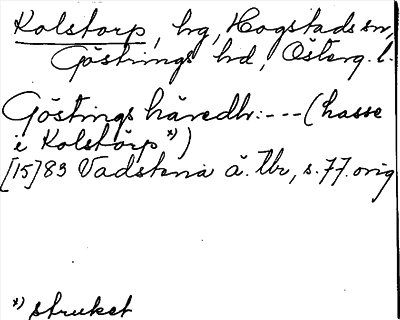 Kolstorp, hg, Hogstads sn,
Göstrings hd, Österg. l.
Göstrings häredh: --- (hasse
i Kolstörp *))
[15]83 Vadstena ä. tbr, s. 77. orig
*) struket